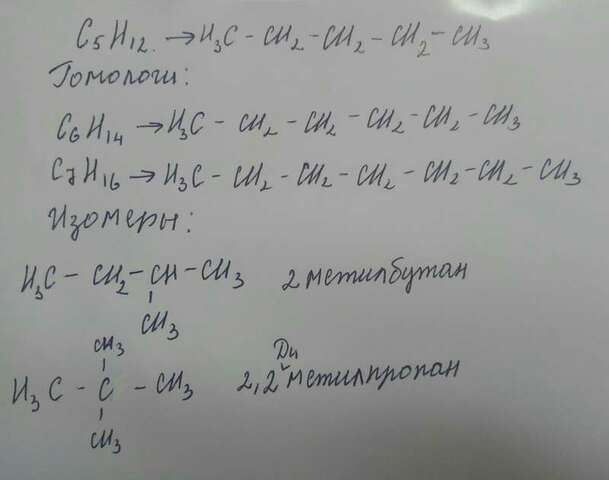 C5H12. → H3C - CH2 - CH2 - CH2 - CH3
Гомологи:
C6H14 → H3C - CH2 - CH2 - CH2 - CH2 - CH3
C7H16 → H3C - CH2 - CH2 - CH2 - CH2 - CH2 - CH3
Изомеры:
H3C - CH2 - CH - CH3 2 метилбутан
CH3
CH3
Ди
H3C - C - CH3 2,2 метилпропан
CH3